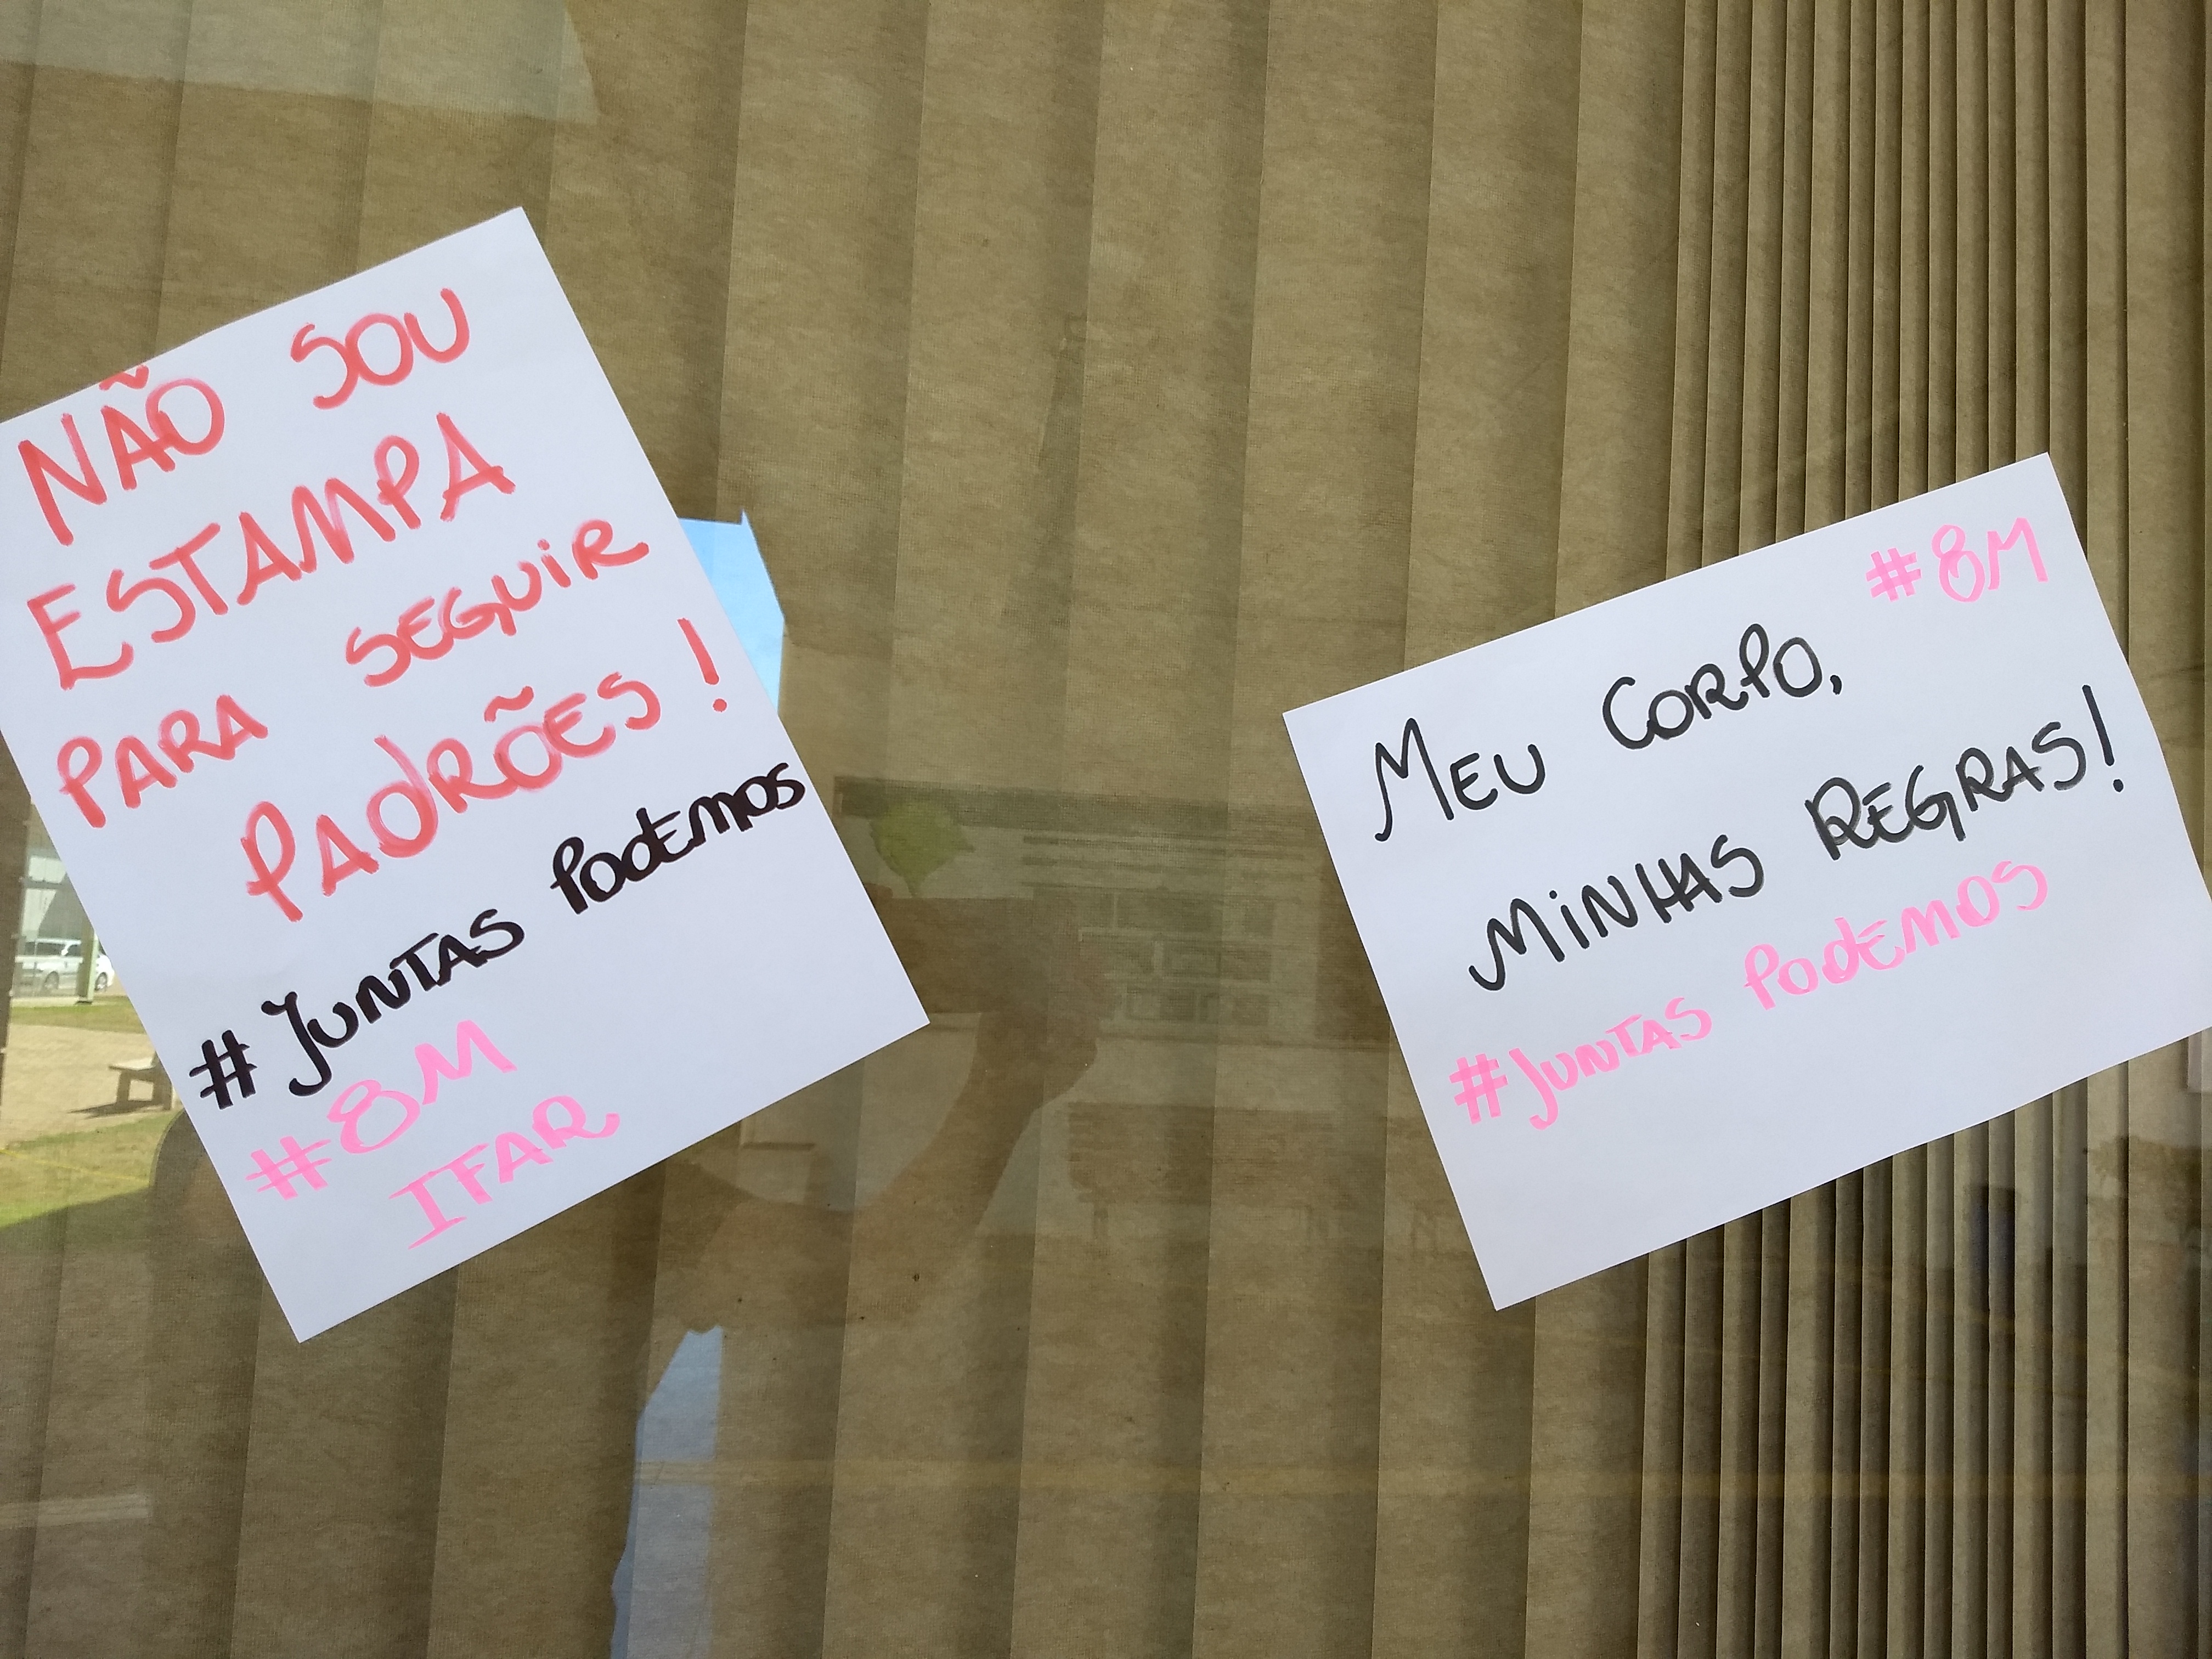 NÃO SOU
ESTAMPA
PARA SEGUIR
PADRÕES!
#JUNTAS PODEMOS
#8M
IFAR
#8M
MEU CORPO,
MINHAS REGRAS!
#JUNTAS PODEMOS